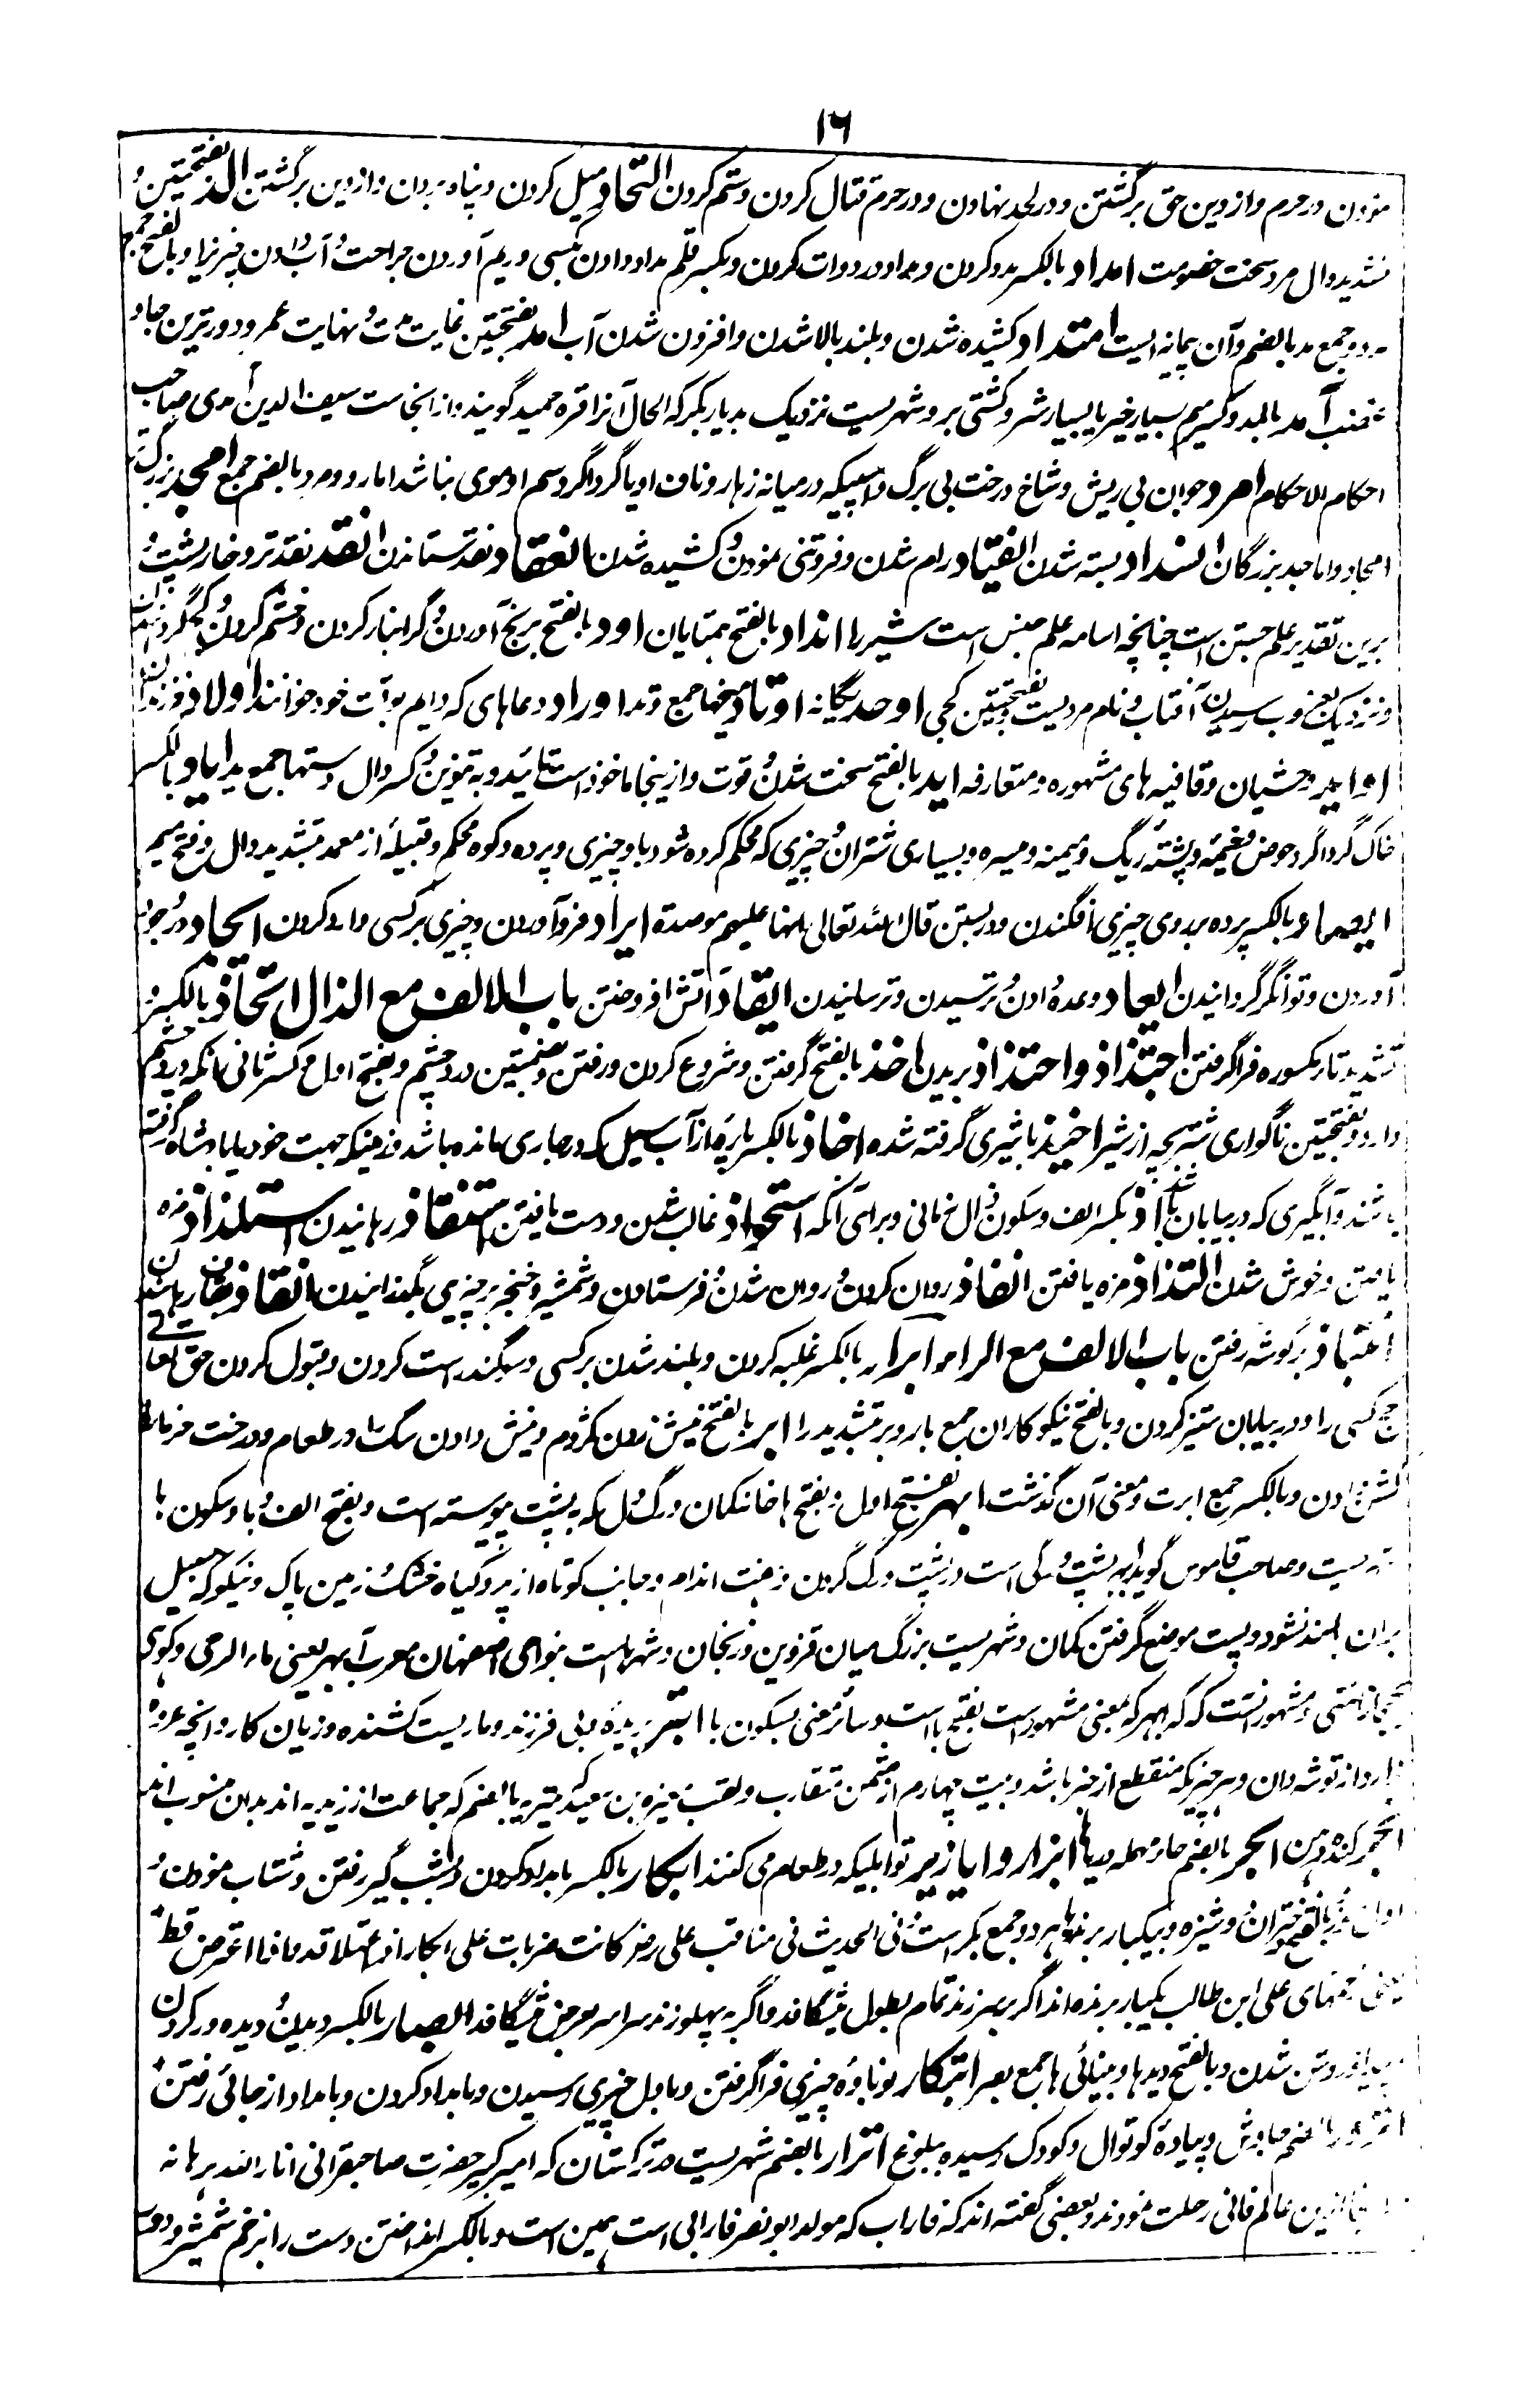 ١٦
نمودن در حرم و از دین حق برگشتن و در لحد نهادن و در حرم قتال کردن و ستم کردن التحاد میل کردن و پناه بردن و از دین برگشتن الد بفتحتین و
تشدید دال مرد سخت خصومت امداد بالکسر مدد کردن و مداد در دوات کردن و بکسر قلم مداد دادن بکسی و ریم آوردن جراحت و آب دادن چیزیرا و بالفتح جمع
مدد و جمع مد بالضم و آن پیمانه ایست امتداد کشیده شدن و بلند بالا شدن و افزون شدن آب امد بفتحتین غایت مدت و نهایت عمر و دورترین جا و
غضب آمد بالمد و کسر میم بسیار خیر یا بسیار شر و کشتی پر و شهریست نزدیک بدیاربکر که الحال آنرا قره حمید گویند و از انجاست سیف الدین آمدی صاحب
احکام الاحکام امرد جوان بی ریش و شاخ درخت بی برگ و اسپیکه در میانه زهار و ناف او یا گرداگرد سم او موی نباشد امارد و مرد بالضم جمع امجد بزرگتر
امجاد و اماجد بزرگان انسداد بسته شدن انقیاد رام شدن و فروتنی نمودن و کشیده شدن انتقاد نقد ستاندن انقد نقدتر و خارپشت و
برین تقدیر علم جنس است چنانچه اسامه علم جنس است شیر را انداد بالفتح همتایان اود بالفتح برنج آوردن و گرانبار کردن و خم کردن و کج گردانیدن
و نزدیک بغروب رسیدن آفتاب و نام مردیست و بفتحتین کجی اوحد یگانه اوتاد میخها جمع وتد اوراد دعاهای که دایم نوبت خود خوانند اولاد فرزندان
اوابد وحشیان و قافیه های مشهوره و متعارفه اید بالفتح سخت شدن و قوت و ازینجا ماخوذ است تائید و به تنوین و کسر دال دستها جمع ید ایاد بالکسر
خاک گرداگرد حوض و خیمه و پشته ریگ و میمنه و میسره و بسیاری شتران و چیزی که محکم کرده شود باو چیزی و پرده و کوه محکم و قبیله از معد بتشدید دال و فتح میم
ایصاد بالکسر پرده بر روی چیزی افگندن و در بستن قال الله تعالی انها علیهم موصدة ایراد فرود آوردن و چیزی بر کسی وارد کردن ایجاد در وجود
آوردن و توانگر گردانیدن ایعاد وعده دادن و ترسیدن و ترسانیدن ایقاد آتش افروختن باب الالف مع الذال اتخاذ بالکسر و
تشدید تا مکسوره فرا گرفتن اجتذاذ و احتذاذ بریدن اخذ بالفتح گرفتن و شروع کردن و رفتن و بضمتین درد چشم و بفتح اول و کسر ثانی آنکه درد چشم
دارد و بفتحتین ناگواری شتر بچه از شیر اخیذ باشیری گرفته شده اخاذ بالکسر پاره از آب سیل که در جاری مانده باشد و زمینیکه جهت خود یا پادشاه گرفته
باشند و آبگیری که در بیابان باشد اذ بکسر الف و سکون ذال زمانی و برای آنکه استحواذ غالب شدن و دست یافتن استنقاذ رهانیدن استلذاذ مزه
یافتن و خوش شدن التذاذ مزه یافتن انفاذ روان کردن و روان شدن و فرستادن و شمشیر و خنجر بر چیزی بگذرانیدن انقاذ رهانیدن
انتباذ بگوشه رفتن باب الالف مع الراء ابرار بالکسر غلبه کردن و بلند شدن بر کسی و سوگند راست کردن و قبول کردن حق تعالی
حج کسی را و در بیابان ستیز کردن و بالفتح نیکوکاران جمع بار و بر بتشدید را ابر بالفتح نیش زدن کژدم و نیش دادن سگ را در طعام و درخت خرما را
گشن دادن و بالکسر جمع ابرت و معنی آن گذشت ابهر بفتح اول و بفتح ها خانه کمان و رگ دل که به پشت پیوسته است و بفتح الف و با و سکون ها
شهریست و صاحب قاموس گوید ابهر پشت و رگی است در پشت و رگ گردن و هفت اندام و جانب کوتاه از پر و گیاه خشک و زمین پاک و نیکو که سیل
بران بلند نشود و پست موضع گرفتن کمان و شهریست بزرگ میان قزوین و زنجان و شهری است بنواحی اصفهان معرب آب بهر یعنی ماء الرحی و کوهی
بحجاز انتهی و مشهور آنست که که ابهر که بمعنی مشهور است بفتح با است و سائر معنی بسکون با ابتر بریده و بی فرزند و ماریست کشنده و زیان کار و آنچه عروه
ندارد از توشه دان و هر چیزیکه منقطع از خیر باشد و بیت چهارم از مثمن متقارب و لقب مغیره بن سعید که بتریه بالضم که جماعت از زیدیه اند بدان منسوب اند
ابخر گنده دهن ابحر بالضم حاء مهمله دریاها ابزار و ابازیر توابلیکه در طعام می کنند ابکار بالکسر بامداد کردن و شب گیر رفتن و شتاب نمودن و
اول روز و بالفتح دختران دوشیزه و بیکبار برنده ها هر دو جمع بکر است و فی الحدیث فی مناقب علی رض کانت ضربات علی ابکار اذا اعتلا قد و اذا اعترض قط
یعنی زخمهای علی ابن طالب یکبار برنده اند اگر بر سر زند تمام بطول می شگافد و اگر به پهلو زند سراسر بعرض می شگافد ابصار بالکسر دیدن و دیده ور کردن
و پیدا و روشن شدن و بالفتح دیدها و بینائی ها جمع بصر ابتکار نوباوه چیزی فرا گرفتن و باول چیزی رسیدن و بامداد کردن و بامداد از جائی رفتن
بالضم چاوش و پیاده کوتوال و کودک رسیده ببلوغ اترار بالضم شهریست در ترکستان که امیر کبیر حضرت صاحبقرانی انار الله برهانه
ازین عالم فانی رحلت نمودند و بعضی گفته اند که فاراب که مولد ابو نصر فارابی است همین است و بالکسر انداختن دست را بزخم شمشیر و دور